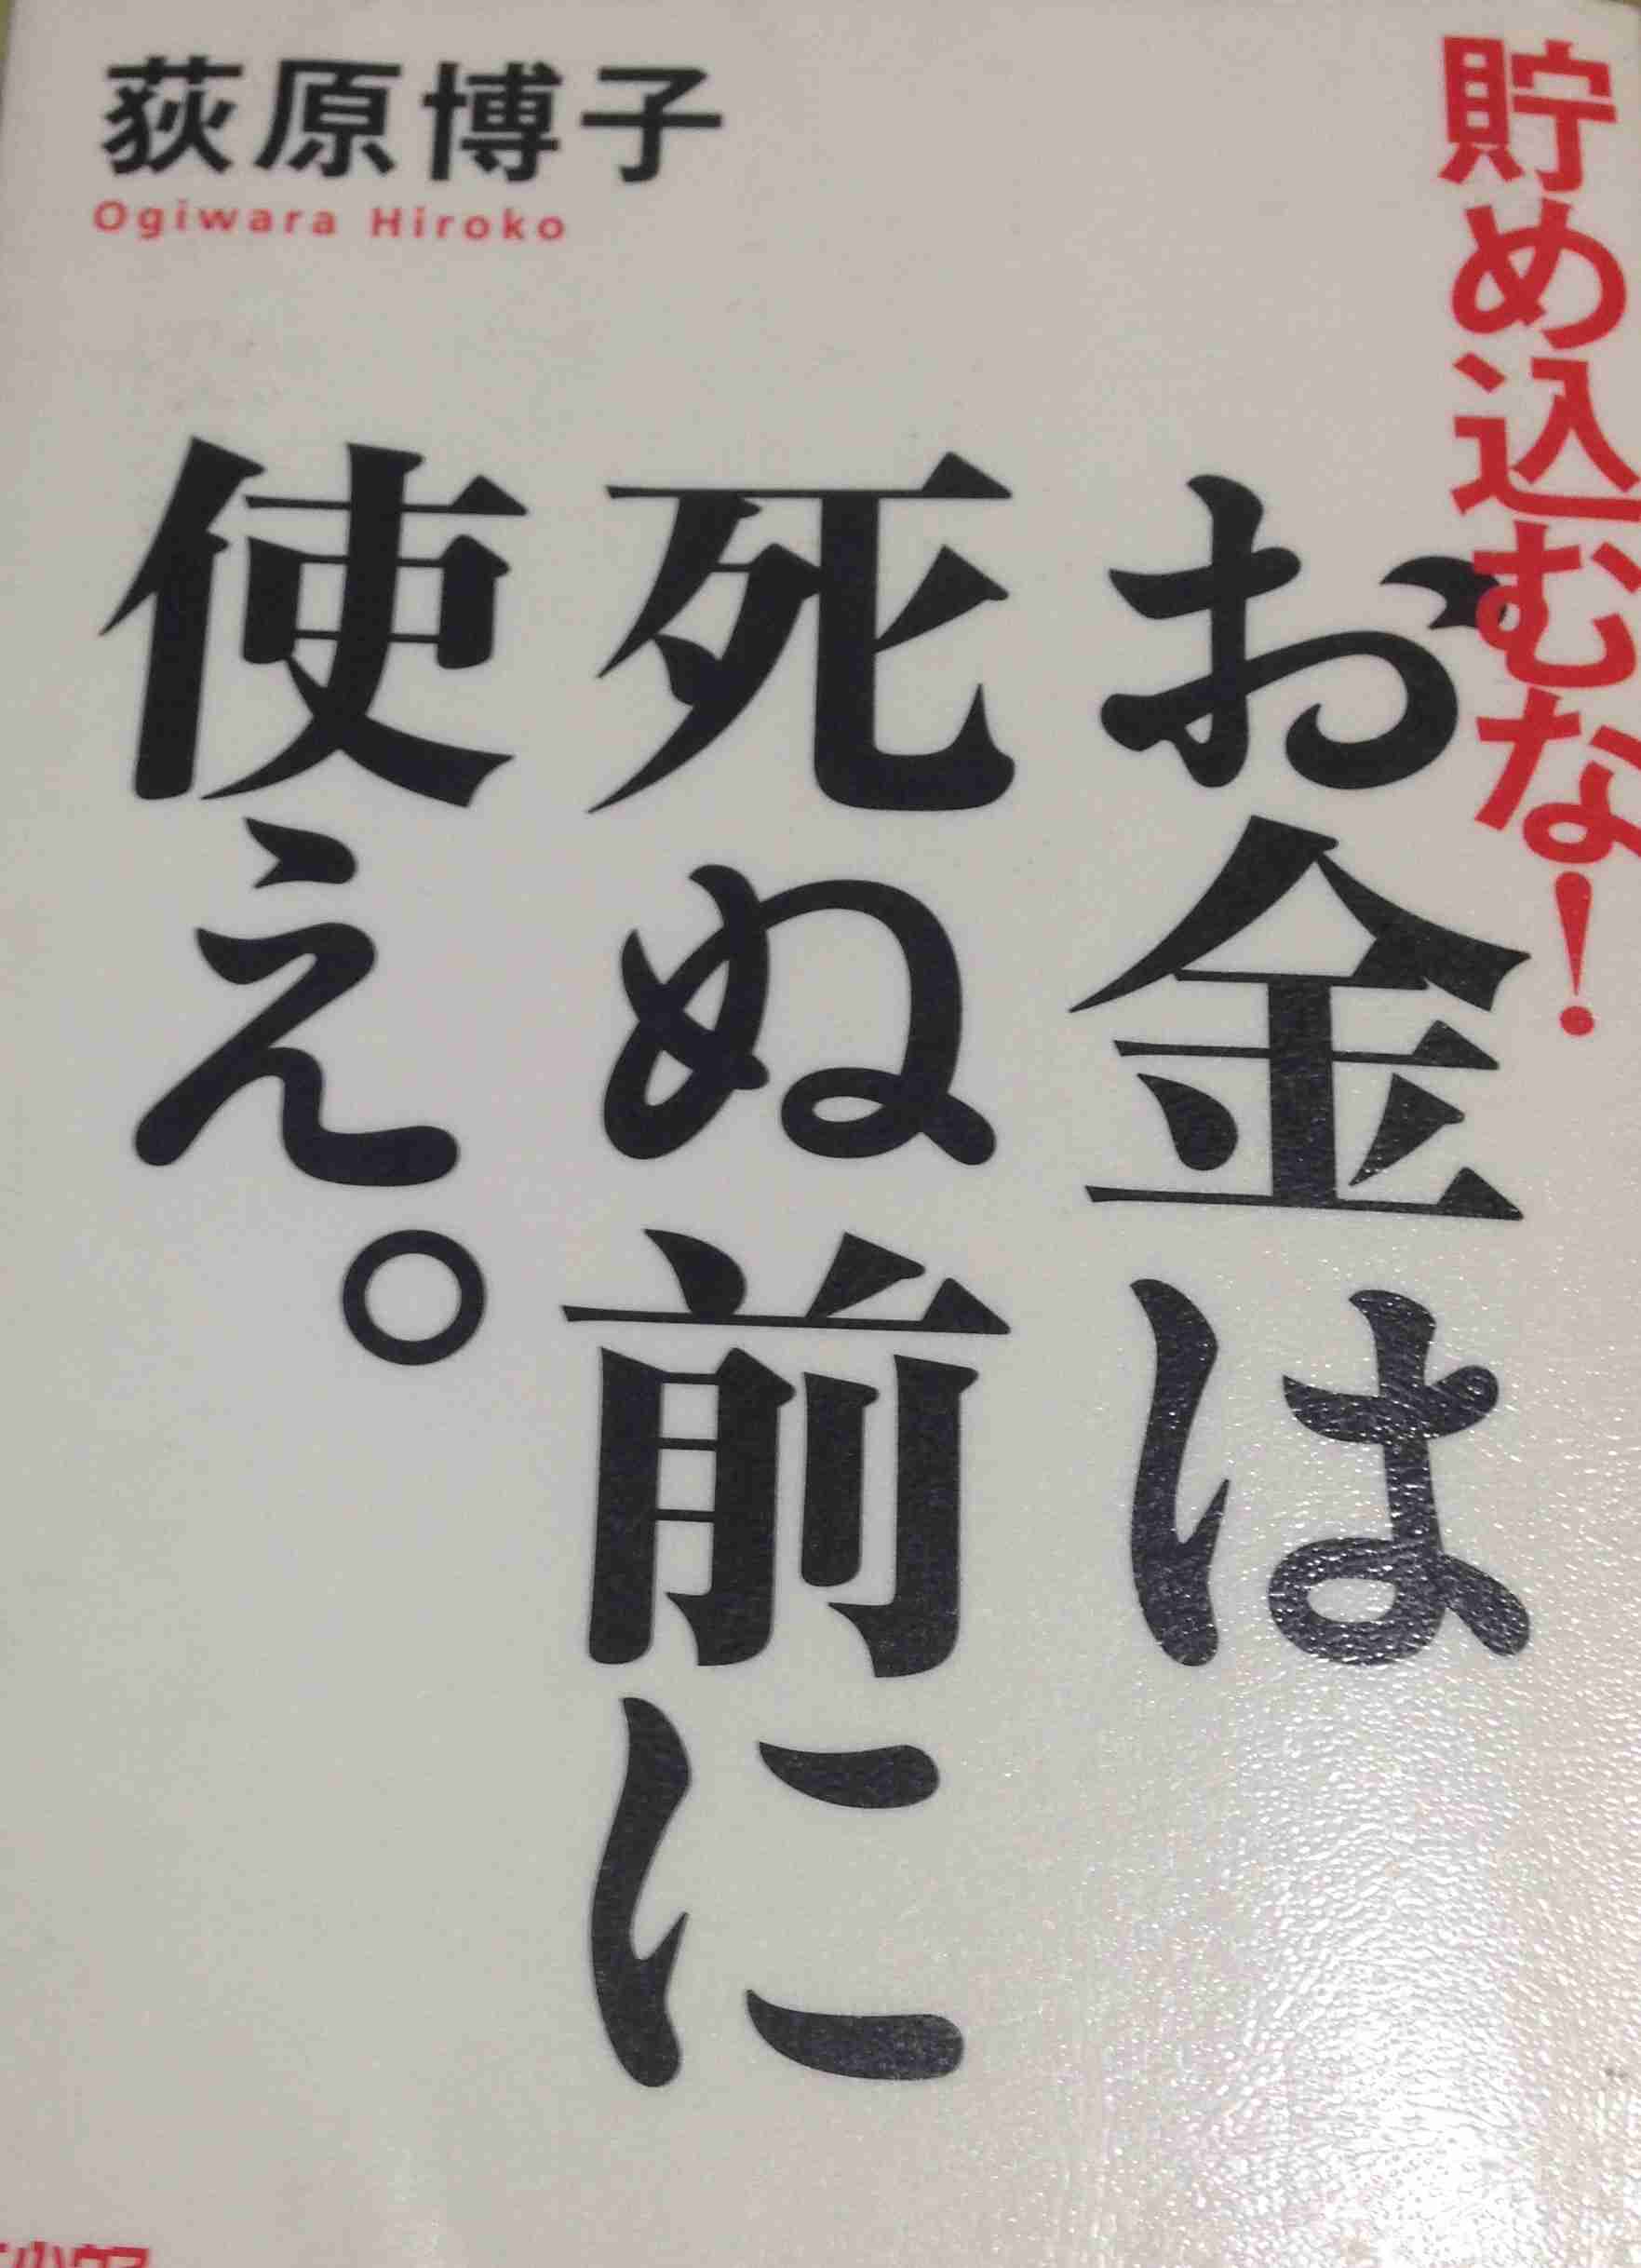 貯め込むな!
お金は
死ぬ前に
使え。
荻原博子
Ogiwara Hiroko